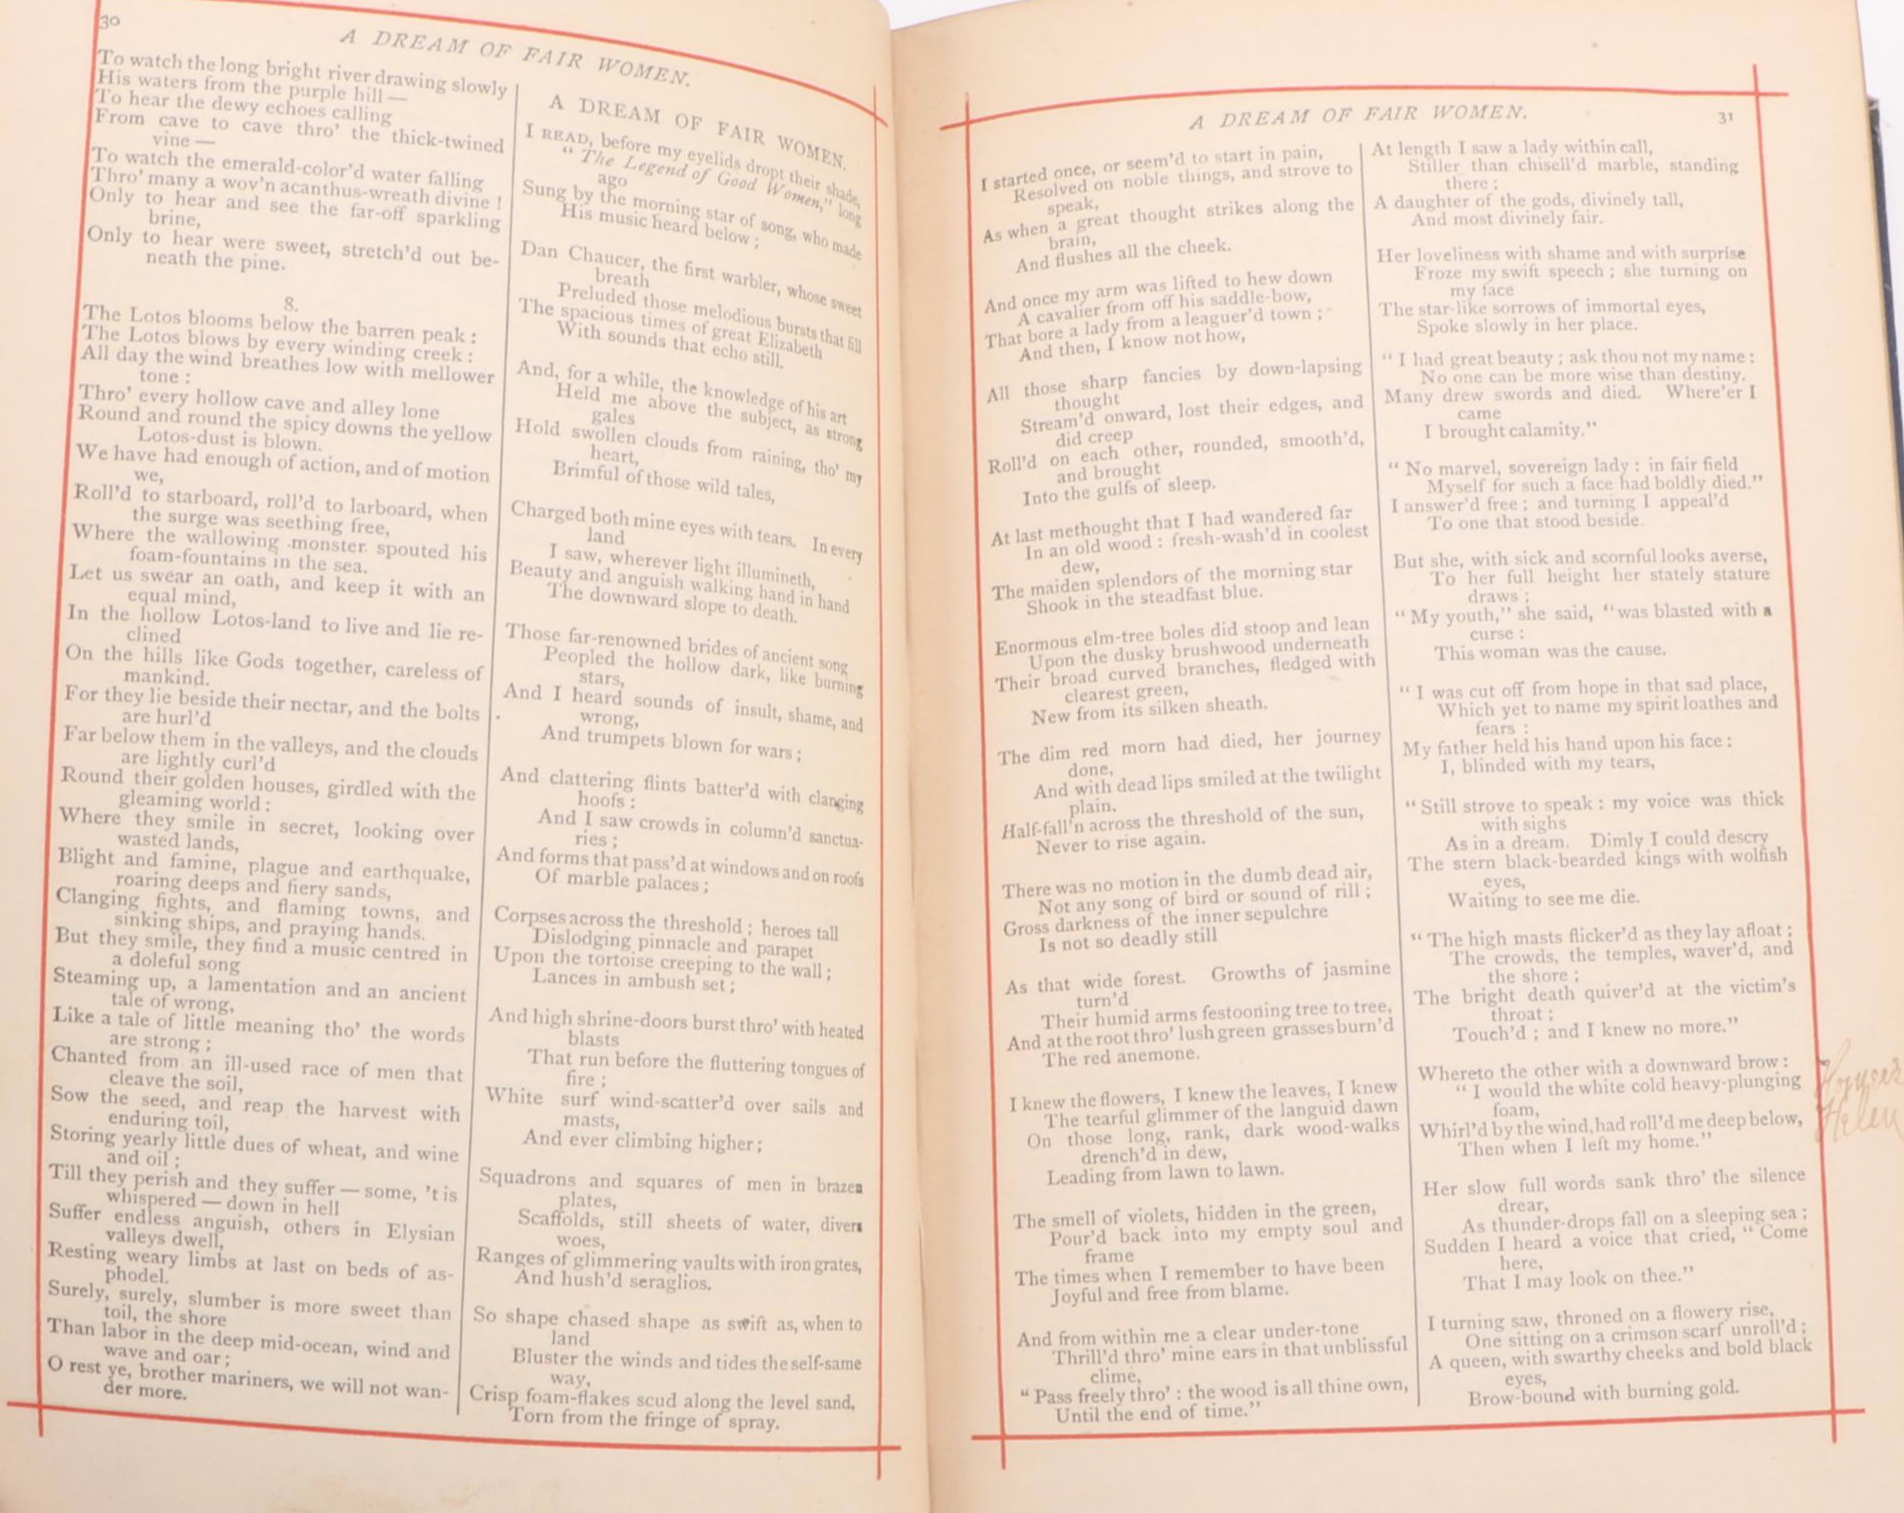 30
A DREAM OF FAIR WOMEN.
To watch the long bright river drawing slowly
His waters from the purple hill —
To hear the dewy echoes calling
From cave to cave thro' the thick-twined
vine —
To watch the emerald-color'd water falling
Thro' many a wov'n acanthus-wreath divine !
Only to hear and see the far-off sparkling
brine,
Only to hear were sweet, stretch'd out be-
neath the pine.
8.
The Lotos blooms below the barren peak :
The Lotos blows by every winding creek :
All day the wind breathes low with mellower
tone :
Thro' every hollow cave and alley lone
Round and round the spicy downs the yellow
Lotos-dust is blown.
We have had enough of action, and of motion
we,
Roll'd to starboard, roll'd to larboard, when
the surge was seething free,
Where the wallowing monster spouted his
foam-fountains in the sea.
Let us swear an oath, and keep it with an
equal mind,
In the hollow Lotos-land to live and lie re-
clined
On the hills like Gods together, careless of
mankind.
For they lie beside their nectar, and the bolts
are hurl'd
Far below them in the valleys, and the clouds
are lightly curl'd
Round their golden houses, girdled with the
gleaming world :
Where they smile in secret, looking over
wasted lands,
Blight and famine, plague and earthquake,
roaring deeps and fiery sands,
Clanging fights, and flaming towns, and
sinking ships, and praying hands.
But they smile, they find a music centred in
a doleful song
Steaming up, a lamentation and an ancient
tale of wrong,
Like a tale of little meaning tho' the words
are strong ;
Chanted from an ill-used race of men that
cleave the soil,
Sow the seed, and reap the harvest with
enduring toil,
Storing yearly little dues of wheat, and wine
and oil ;
Till they perish and they suffer — some, 't is
whispered — down in hell
Suffer endless anguish, others in Elysian
valleys dwell,
Resting weary limbs at last on beds of as-
phodel.
Surely, surely, slumber is more sweet than
toil, the shore
Than labor in the deep mid-ocean, wind and
wave and oar ;
O rest ye, brother mariners, we will not wan-
der more.
A DREAM OF FAIR WOMEN.
I READ, before my eyelids dropt their shade,
" The Legend of Good Women," long
ago
Sung by the morning star of song, who made
His music heard below ;
Dan Chaucer, the first warbler, whose sweet
breath
Preluded those melodious bursts that fill
The spacious times of great Elizabeth
With sounds that echo still.
And, for a while, the knowledge of his art
Held me above the subject, as strong
gales
Hold swollen clouds from raining, tho' my
heart,
Brimful of those wild tales,
Charged both mine eyes with tears. In every
land
I saw, wherever light illumineth,
Beauty and anguish walking hand in hand
The downward slope to death.
Those far-renowned brides of ancient song
Peopled the hollow dark, like burning
stars,
And I heard sounds of insult, shame, and
wrong,
And trumpets blown for wars ;
And clattering flints batter'd with clanging
hoofs :
And I saw crowds in column'd sanctua-
ries ;
And forms that pass'd at windows and on roofs
Of marble palaces ;
Corpses across the threshold ; heroes tall
Dislodging pinnacle and parapet
Upon the tortoise creeping to the wall ;
Lances in ambush set ;
And high shrine-doors burst thro' with heated
blasts
That run before the fluttering tongues of
fire ;
White surf wind-scatter'd over sails and
masts,
And ever climbing higher ;
Squadrons and squares of men in brazen
plates,
Scaffolds, still sheets of water, divers
woes,
Ranges of glimmering vaults with iron grates,
And hush'd seraglios.
So shape chased shape as swift as, when to
land
Bluster the winds and tides the self-same
way,
Crisp foam-flakes scud along the level sand,
Torn from the fringe of spray.
A DREAM OF FAIR WOMEN.
31
I started once, or seem'd to start in pain,
Resolved on noble things, and strove to
speak,
As when a great thought strikes along the
brain,
And flushes all the cheek.
And once my arm was lifted to hew down
A cavalier from off his saddle-bow,
That bore a lady from a leaguer'd town ;
And then, I know not how,
All those sharp fancies by down-lapsing
thought
Stream'd onward, lost their edges, and
did creep
Roll'd on each other, rounded, smooth'd,
and brought
Into the gulfs of sleep.
At last methought that I had wandered far
In an old wood : fresh-wash'd in coolest
dew,
The maiden splendors of the morning star
Shook in the steadfast blue.
Enormous elm-tree boles did stoop and lean
Upon the dusky brushwood underneath
Their broad curved branches, fledged with
clearest green,
New from its silken sheath.
The dim red morn had died, her journey
done,
And with dead lips smiled at the twilight
plain,
Half-fall'n across the threshold of the sun,
Never to rise again.
There was no motion in the dumb dead air,
Not any song of bird or sound of rill ;
Gross darkness of the inner sepulchre
Is not so deadly still
As that wide forest. Growths of jasmine
turn'd
Their humid arms festooning tree to tree,
And at the root thro' lush green grasses burn'd
The red anemone.
I knew the flowers, I knew the leaves, I knew
The tearful glimmer of the languid dawn
On those long, rank, dark wood-walks
drench'd in dew,
Leading from lawn to lawn.
The smell of violets, hidden in the green,
Pour'd back into my empty soul and
frame
The times when I remember to have been
Joyful and free from blame.
And from within me a clear under-tone
Thrill'd thro' mine ears in that unblissful
clime,
" Pass freely thro' : the wood is all thine own,
Until the end of time."
At length I saw a lady within call,
Stiller than chisell'd marble, standing
there ;
A daughter of the gods, divinely tall,
And most divinely fair.
Her loveliness with shame and with surprise
Froze my swift speech ; she turning on
my face
The star-like sorrows of immortal eyes,
Spoke slowly in her place.
" I had great beauty ; ask thou not my name :
No one can be more wise than destiny.
Many drew swords and died. Where'er I
came
I brought calamity."
" No marvel, sovereign lady : in fair field
Myself for such a face had boldly died."
I answer'd free ; and turning I appeal'd
To one that stood beside.
But she, with sick and scornful looks averse,
To her full height her stately stature
draws ;
" My youth," she said, " was blasted with a
curse :
This woman was the cause.
" I was cut off from hope in that sad place,
Which yet to name my spirit loathes and
fears :
My father held his hand upon his face :
I, blinded with my tears,
" Still strove to speak : my voice was thick
with sighs
As in a dream. Dimly I could descry
The stern black-bearded kings with wolfish
eyes,
Waiting to see me die.
" The high masts flicker'd as they lay afloat ;
The crowds, the temples, waver'd, and
the shore ;
The bright death quiver'd at the victim's
throat ;
Touch'd ; and I knew no more."
Whereto the other with a downward brow :
" I would the white cold heavy-plunging
foam,
Whirl'd by the wind, had roll'd me deep below,
Then when I left my home."
Her slow full words sank thro' the silence
drear,
As thunder-drops fall on a sleeping sea ;
Sudden I heard a voice that cried, " Come
here,
That I may look on thee."
I turning saw, throned on a flowery rise,
One sitting on a crimson scarf unroll'd ;
A queen, with swarthy cheeks and bold black
eyes,
Brow-bound with burning gold.
Helen